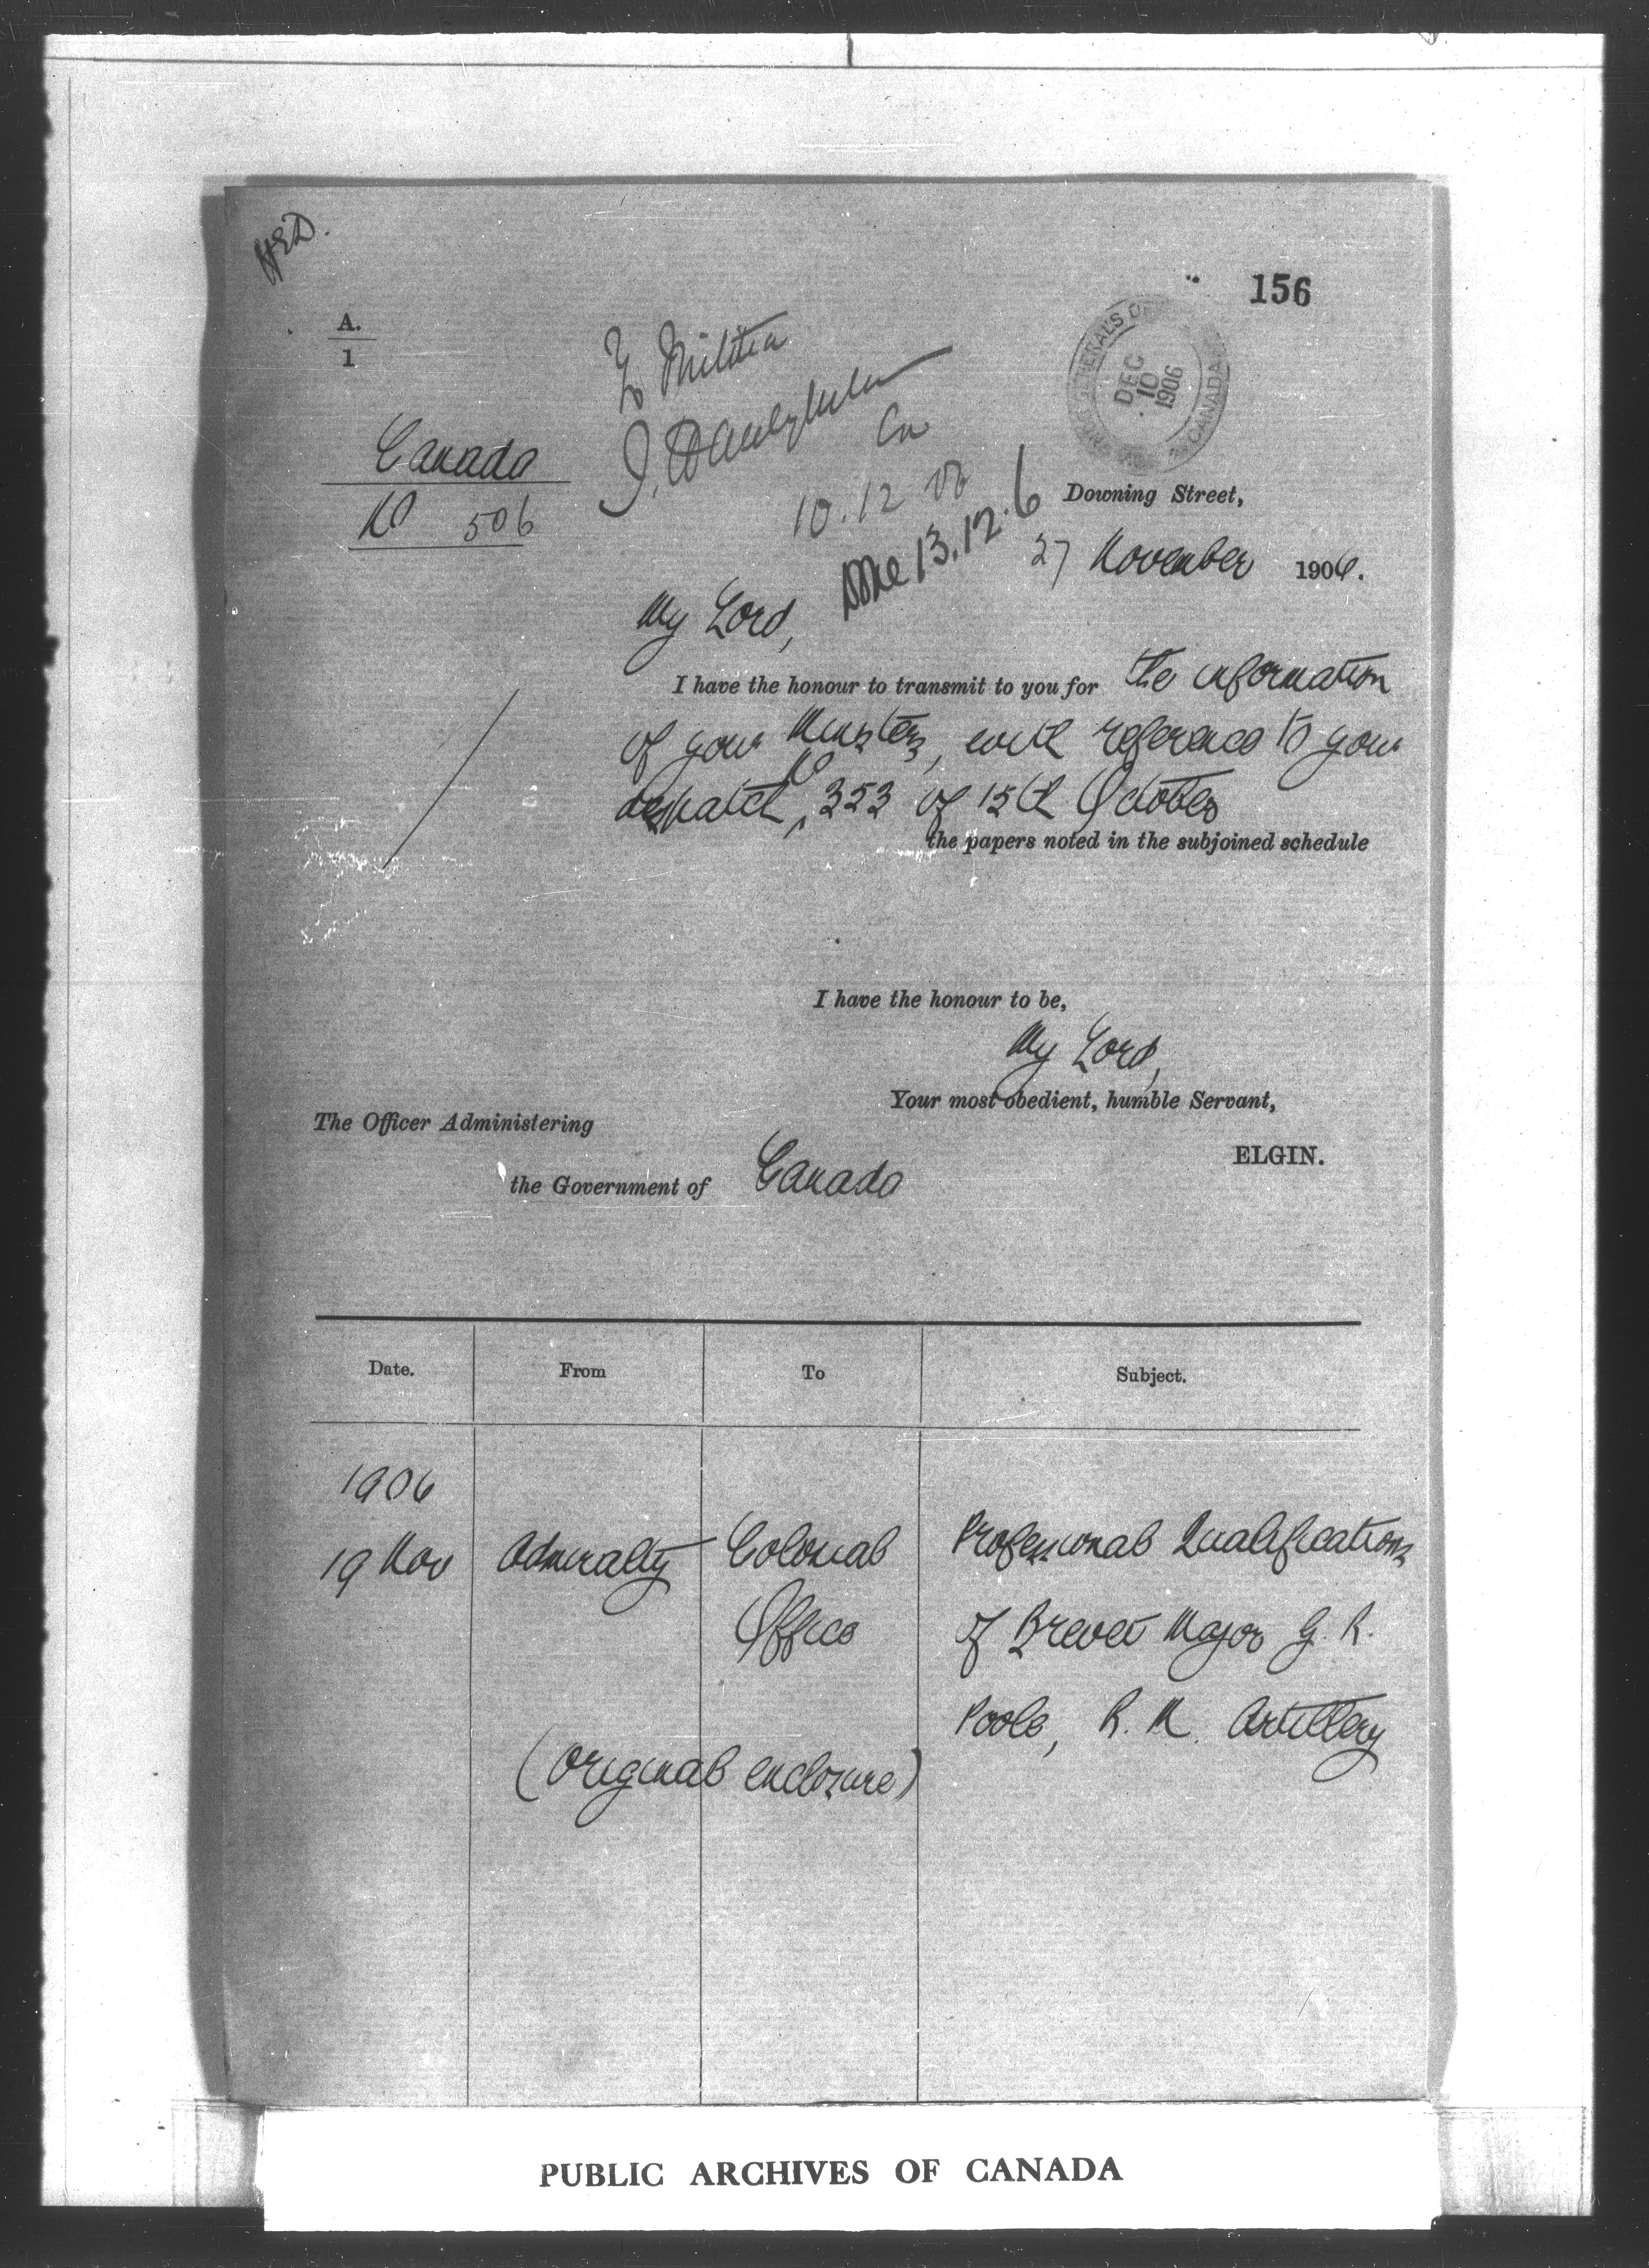 HED.
156
A.
1
To Militia
DEC
10
1906
CANADA
Canada
No 506
10.12.06
Done 13.12.6
Downing Street,
27 November 1906.
My Lord,
I have the honour to transmit to you for the information
of your Ministers, with reference to your
despatch No 353 of 15th October
the papers noted in the subjoined schedule
I have the honour to be,
My Lord,
Your most obedient, humble Servant,
ELGIN.
The Officer Administering
the Government of Canada
Date. From To Subject.
1906
19 Nov Admiralty Colonial Professional Qualifications
Office of Brevet Major G. R.
Poole, R. M. Artillery
(Original enclosure)
PUBLIC ARCHIVES OF CANADA